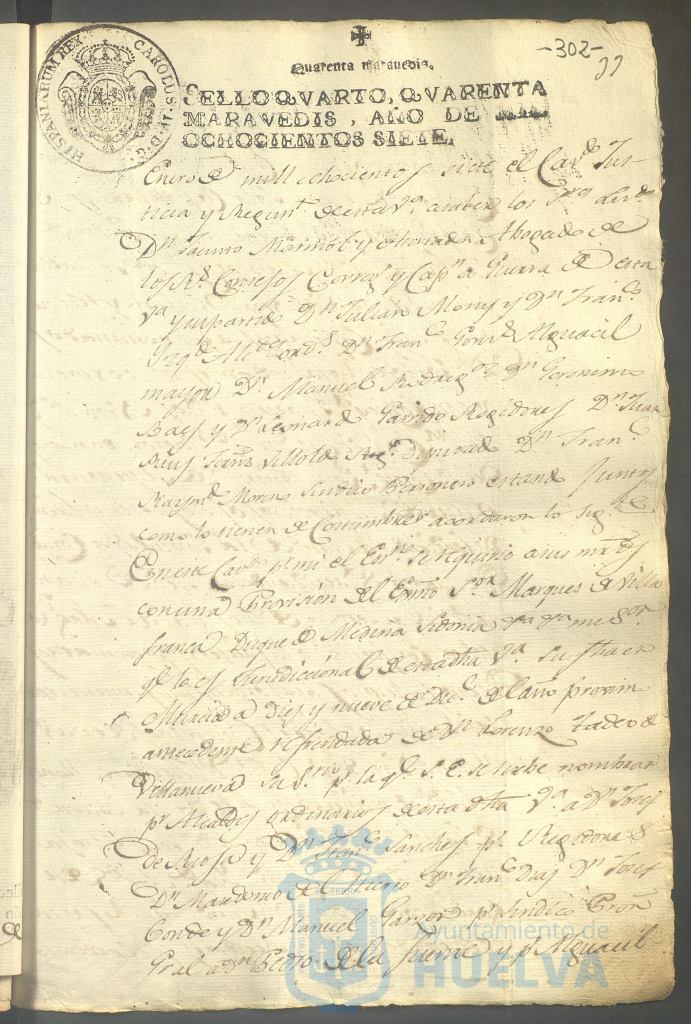 -302-
Quarenta maravedis.
SELLO QVARTO, QVARENTA
MARAVEDIS, AÑO DE MIL
OCHOCIENTOS SIETE.
HISPANIARUM REX CAROLUS IV D G
Enero de mill ochocientos siete el Cavdo Jus-
ticia y Regimto de esta Va a saber los Sres
Dn Jacinto Marmol y Abogado de
los Rs Consejos Corregr y Capn a Guerra de esta
Va y su partdo Dn Julian y Dn Franco
Alcdes ords Dn Franco Alguacil
mayor Dn Manuel Rodrigz Dn Geronimo
Baes y Dn Leonardo Garrido Regidores Dn Juan
Diputado Dn Franco
Raymdo Moreno Sindico Personero estando Juntos
como lo tienen de Costumbre acordaron lo sigte
En este Cavdo pr mi el Esno se requirio a sus mrds
con una Provision del Exmo Sor Marques de Villa
franca Duque de Medina Sidonia mi Sor
qe lo es Jurisdiccional de esta dha Va su fha en
Murcia a Diez y nueve de Dice del año proximo
antecedente refrendada de Dn Lorenzo Tadeo de
Villanueva su Srio pr la qe S. E. se sirbe nombrar
pr Alcaldes ordinarios de esta dha Va a Dn Josef
de la Rosa y Dn Franco Sanches pr Regidores
Dn del Hierro Dn Franco Diaz Dn Josef
Conde y Dn Manuel Garzon pr Sindico Pror
Gral a Dn Pedro de la Fuente y pr Alguacil
Ayuntamiento de
HUELVA